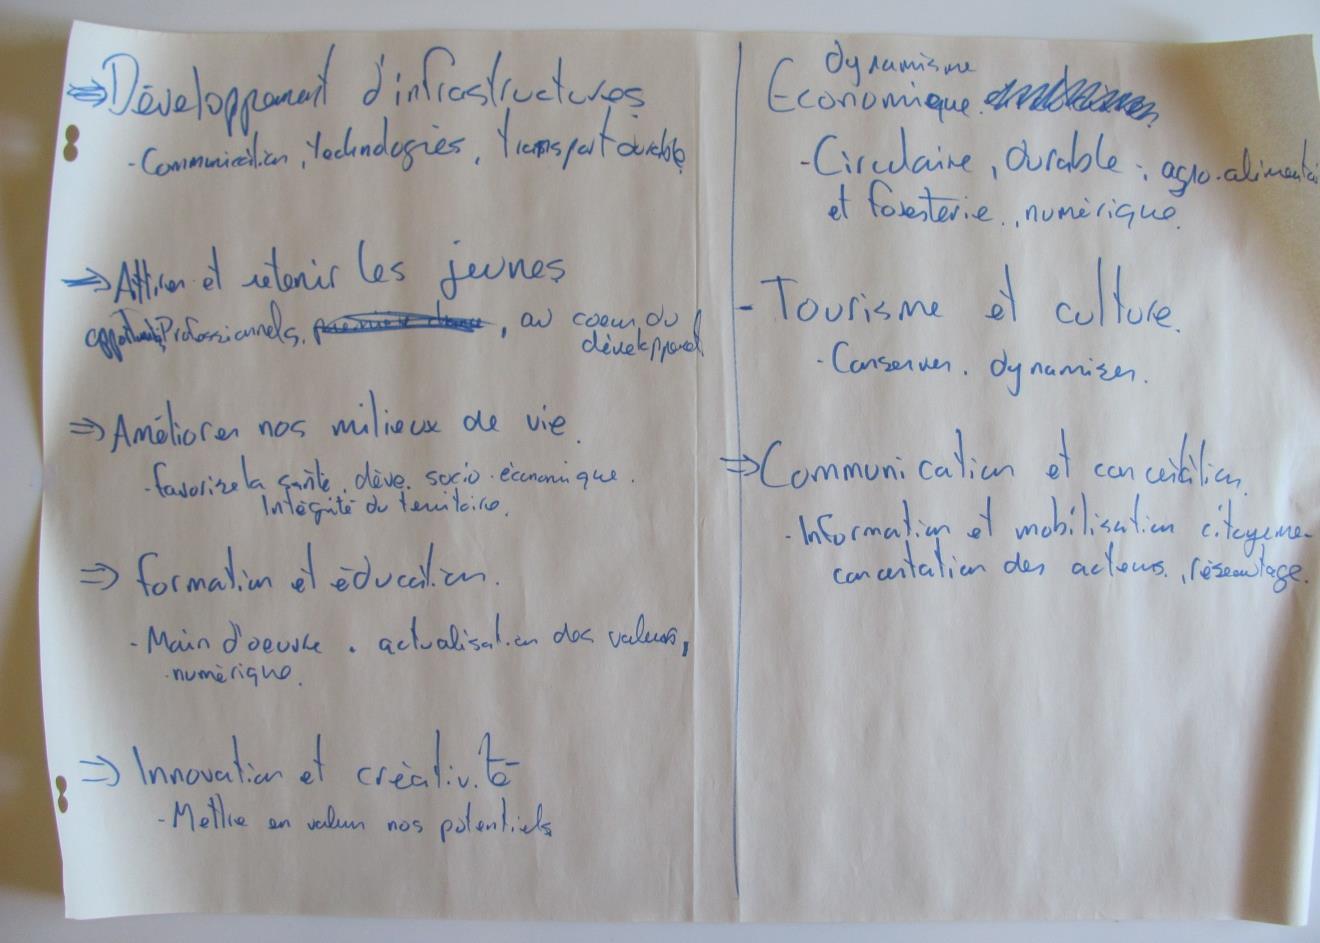 ⇒ Développement d'infrastructures
- Communication, technologies, transport durable
⇒ Attirer et retenir les jeunes
opportunités Professionnels, , au coeur du
développement
⇒ Améliorer nos milieux de vie.
- favorise la santé, déve. socio-économique.
Intégrité du territoire.
⇒ formation et éducation.
- Main d'oeuvre, actualisation des valeurs,
numérique.
⇒ Innovation et créativité
- Mettre en valeur nos potentiels
dynamisme
Economique.
- Circulaire, durable, agro-alimentai
et foresterie, numérique.
- Tourisme et culture.
- Conserver, dynamiser.
⇒ Communication et concertation.
- Information et mobilisation citoyenne
concertation des acteurs, réseautage.